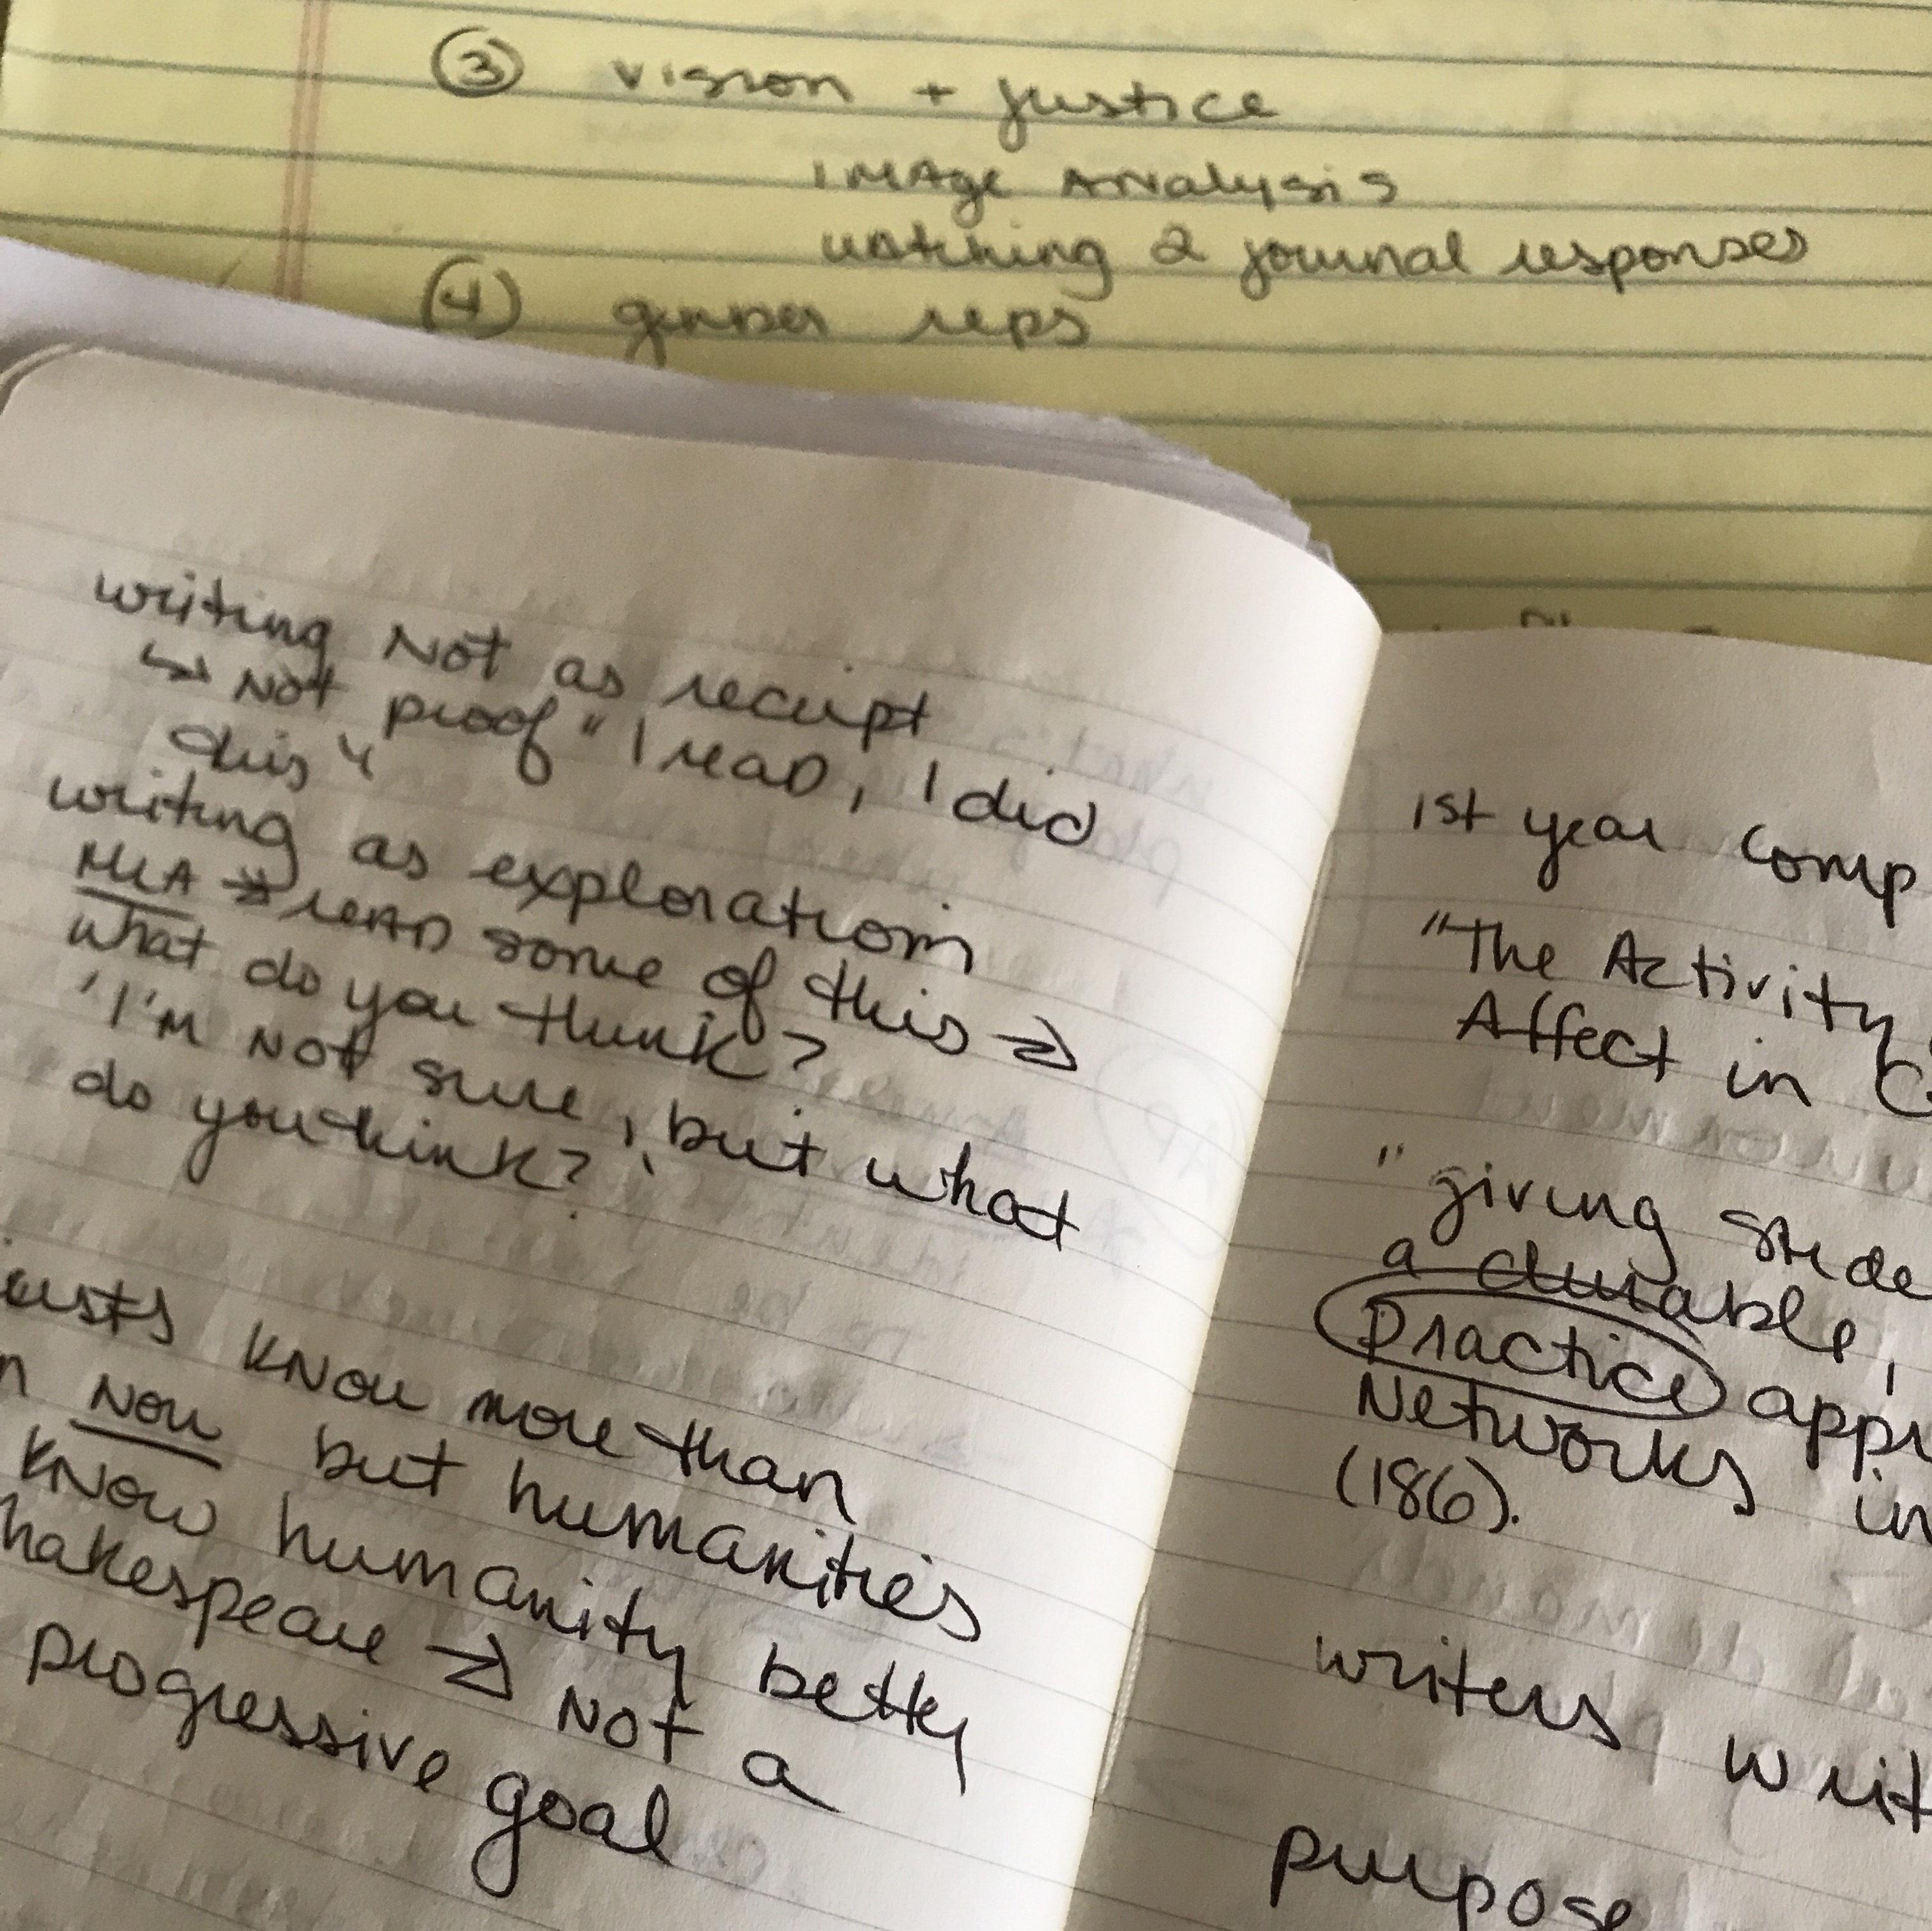 ③ vision + justice
IMAge ANalysis
watching 2 journal responses
④ gender reps
writing Not as receipt
↳ Not proof "I reaD, I did
this"
writing as exploration
→ reAD some of this →
what do you think?
'I'm Not sure, but what
do you think?'
KNow more than
Now but humanities
KNow humanity better
hakespeare → Not a
progressive goal
1st year comp
"The Activity
Affect in
"giving stude
a durable,
practice appr
Networks in
(186).
writers writ
purpose